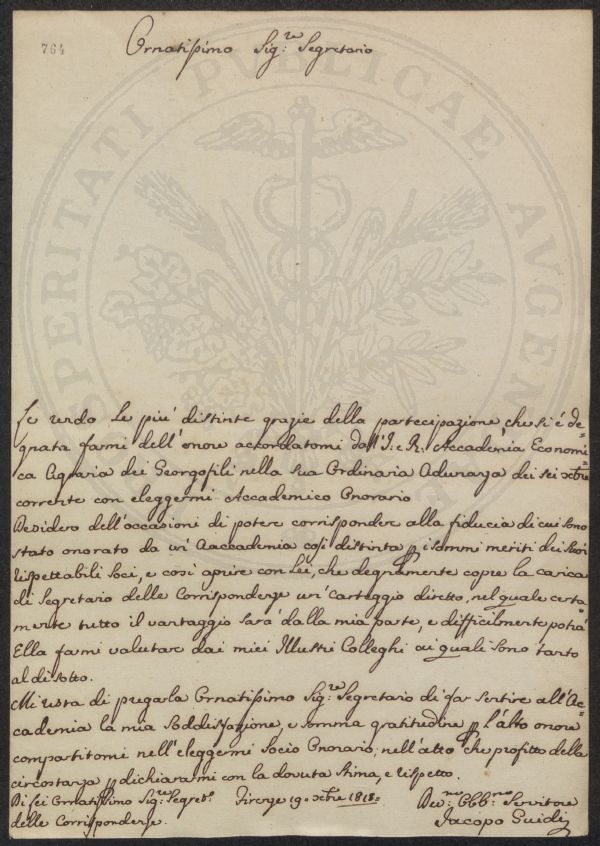 764
Ornatissimo Sig:re Segretario
PROSPERITATI PUBLICAE AUGENDAE
Le rendo le più distinte grazie della partecipazione, che si è de=
gnata farmi dell'onore accordatomi dall'I. e R. Accademia Economi=
ca Agraria dei Georgofili nella sua Ordinaria Adunanza dei sei
corrente con eleggermi Accademico Onorario
Desidero dell'occasioni di potere corrispondere alla fiducia di cui sono
stato onorato da un' Aaccademia così distinta p i sommi meriti dei Suoi
rispettabili Soci, e così aprire con Lei, che degnamente copre la carica
di Segretario delle Corrispondenze un'Carteggio diretto, nel quale certa=
mente tutto il vantaggio sarà dalla mia parte, e difficilmente potrà
Ella farmi valutare dai miei Illustri Colleghi ai quali sono tanto
al di sotto.
Mi resta di pregarla Ornatissimo Sig:re Segretario di far sentire all'Ac=
cademia la mia Soddisfazione, e somma gratitudine p l'alto onore
compartitomi nell'eleggermi Socio Onorario, nell'atto che profitto della
circostanza p dichiararmi con la dovuta stima, e rispetto.
Di Lei Ornatissimo Sig:re Segret:o Firenze 19. 1818.
Dev:mo Obb:mo Servitore
delle Corrispondenze.
Jacopo Guidi